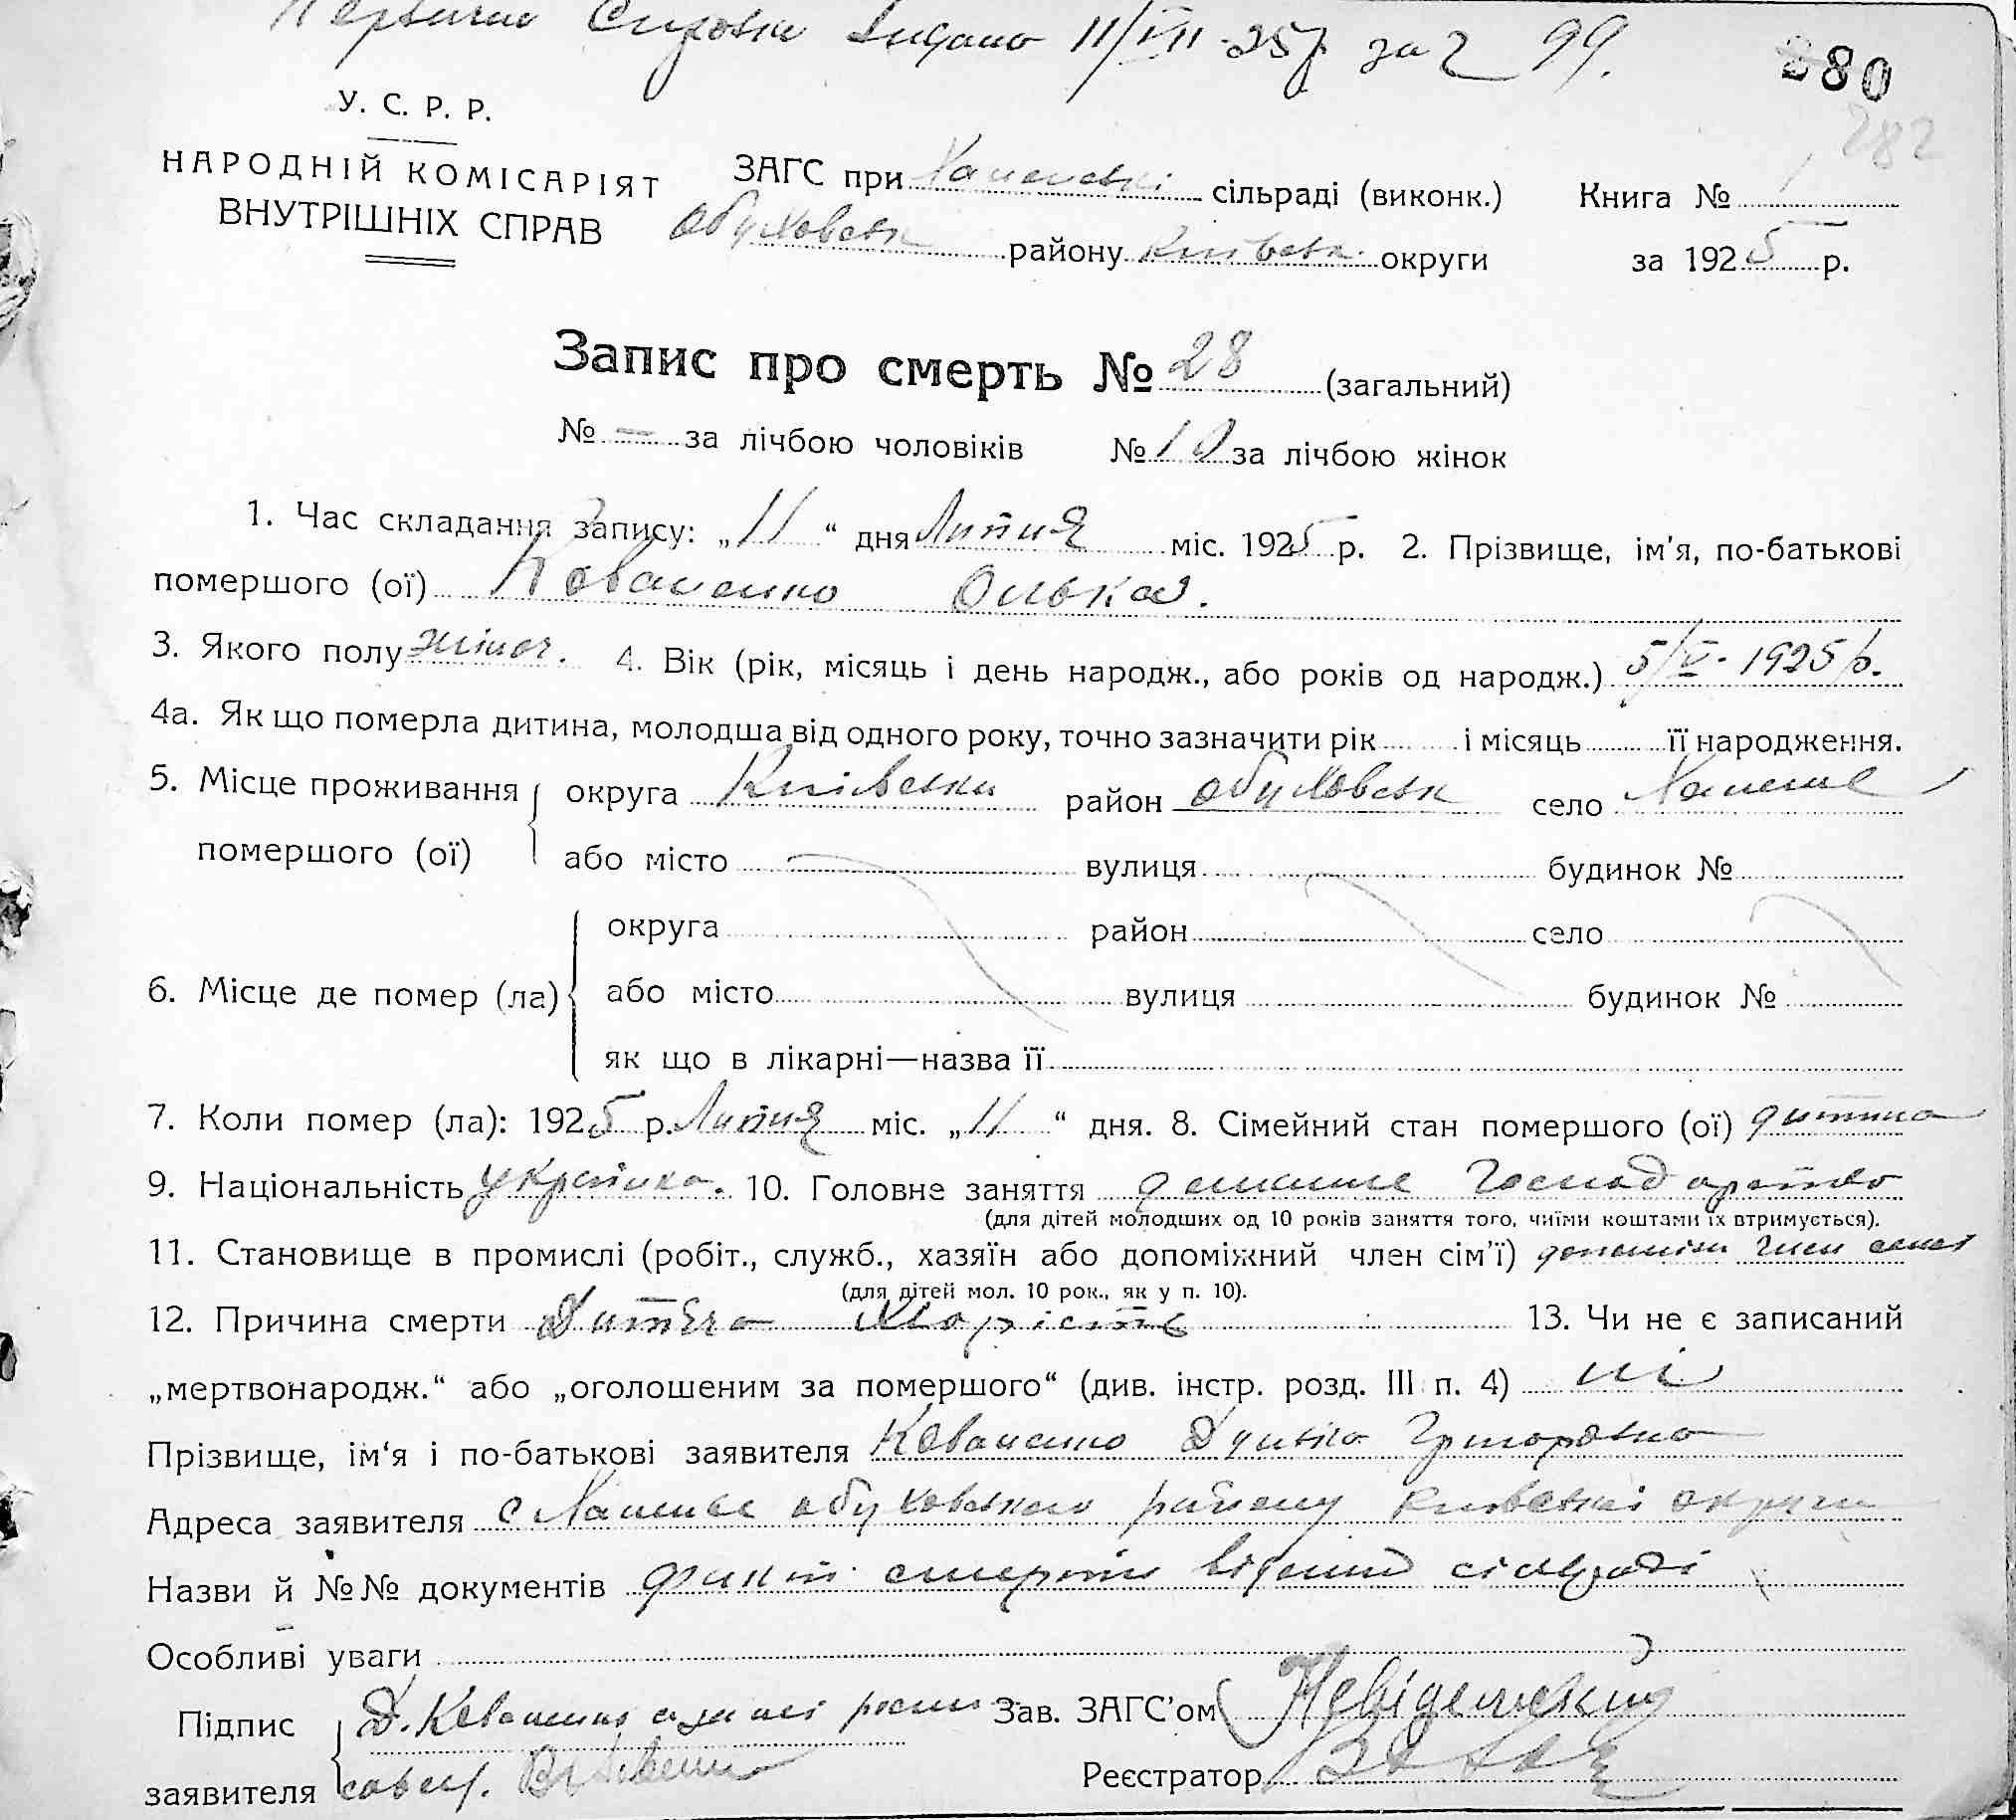 видано 11/VII-25р. за 2 99.
280
282
У. С. Р. Р.
НАРОДНІЙ КОМІСАРІЯТ
ВНУТРІШНІХ СПРАВ
ЗАГС при сільраді (виконк.) Книга № 1
Обуховськ району Київськ. округи за 1925 р.
Запис про смерть № 28 (загальний)
№ — за лічбою чоловіків № 10 за лічбою жінок
1. Час складання запису: „11“ дня Липня міс. 1925 р. 2. Прізвище, ім'я, по-батькові
помершого (ої) Коваленко Олька.
3. Якого полу жіноч. 4. Вік (рік, місяць і день народж., або років од народж.) 5/V-1925 р.
4а. Як що померла дитина, молодша від одного року, точно зазначити рік і місяць її народження.
5. Місце проживання округа Київська район Обуховськ село
помершого (ої) або місто вулиця будинок №
округа район село
6. Місце де помер (ла) або місто вулиця будинок №
як що в лікарні—назва її
7. Коли помер (ла): 1925 р. Липня міс. „11“ дня. 8. Сімейний стан помершого (ої) дитина
9. Національність українка. 10. Головне заняття домашнє господарство
(для дітей молодших од 10 років заняття того, чиїми коштами їх втримується).
11. Становище в промислі (робіт., служб., хазяїн або допоміжний член сім'ї) допоміжн член сем'ї
(для дітей мол. 10 рок., як у п. 10).
12. Причина смерти Дитяча хворість 13. Чи не є записаний
„мертвонародж.“ або „оголошеним за помершого“ (див. інстр. розд. III п. 4) ні
Прізвище, ім'я і по-батькові заявителя Коваленко Григоровна
Адреса заявителя с обуховського району Київської округи
Назви й №№ документів факт смерти відомий сільраді
Особливі уваги
Підпис Д. Коваленко Зав. ЗАГС'ом
заявителя Реєстратор